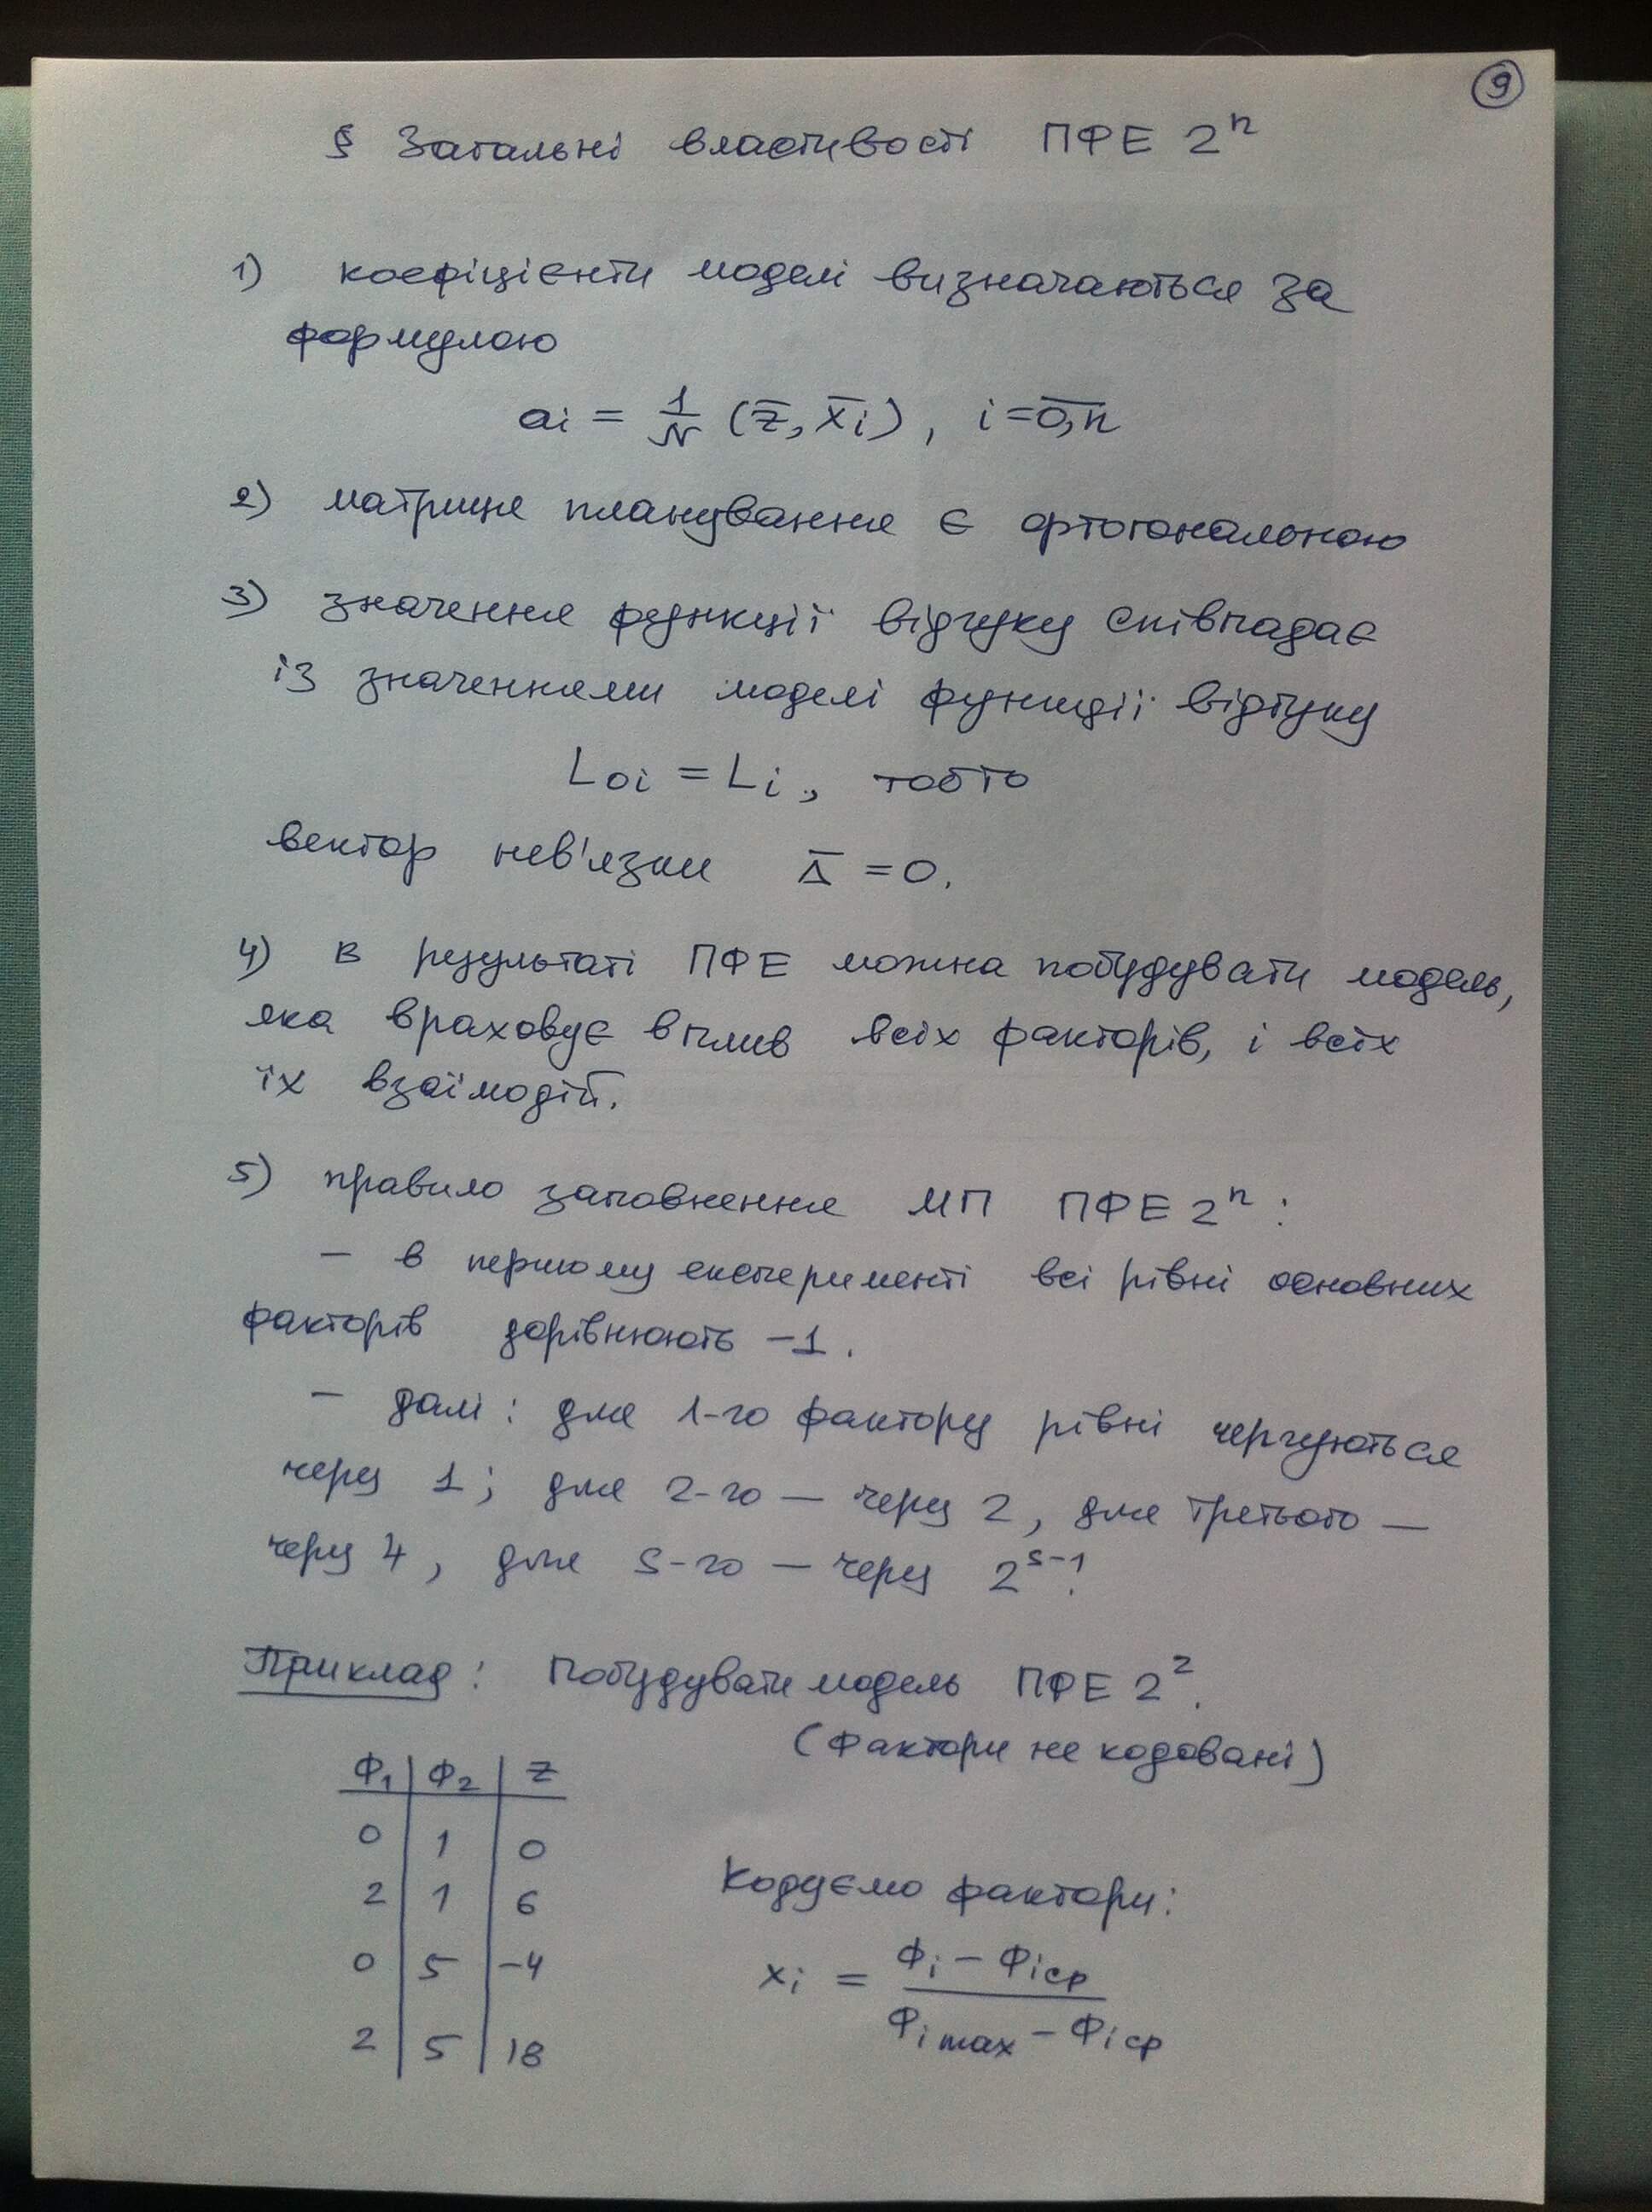 9
§ Загальні властивості ПФЕ 2ⁿ
1) коефіцієнти моделі визначаються за
формулою
ai = 1/N (z̅, x̅i), i = 0,n
2) матриця планування є ортогональною
3) значення функції відгуку співпадає
із значеннями моделі функції відгуку
L₀i = Li, тобто
вектор нев'язки Δ̅ = 0.
4) в результаті ПФЕ можна побудувати модель,
яка враховує вплив всіх факторів, і всіх
їх взаїмодій.
5) правило заповнення МП ПФЕ 2ⁿ:
– в першому експерименті всі рівні основних
факторів дорівнюють -1.
– далі: для 1-го фактору рівні чергуються
через 1; для 2-го – через 2, для третього –
через 4, для s-го – через 2ˢ⁻¹.
Приклад: Побудувати модель ПФЕ 2².
(Фактори не кодовані)
Ф₁ | Ф₂ | z
0 | 1 | 0
2 | 1 | 6
0 | 5 | -4
2 | 5 | 18
Кодуємо фактори:
xi = (Фi – Фi ср) / (Фi max – Фi ср)